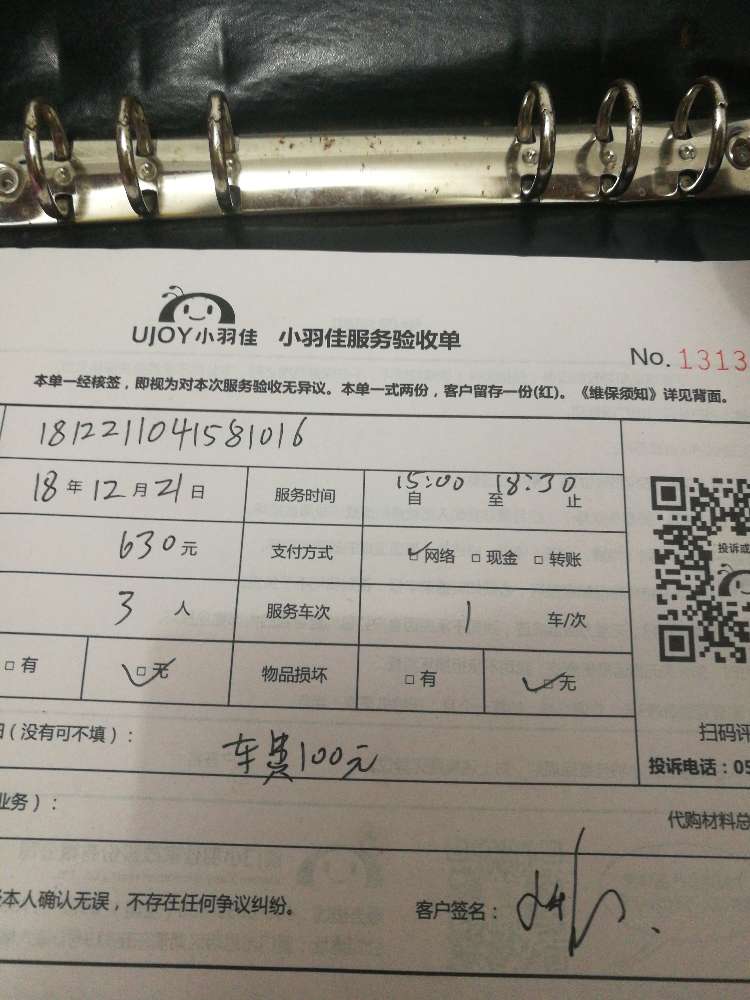 UJOY小羽佳 小羽佳服务验收单
No. 1313
本单一经核签，即视为对本次服务验收无异议。本单一式两份，客户留存一份(红)。《维保须知》详见背面。
1812211041581016
18年12月21日 服务时间 自15:00至18:30止
630元 支付方式 ☑网络 □现金 □转账
投诉或
3人 服务车次 1 车/次
□有 ☑无 物品损坏 □有 ☑无
扫码评
(没有可不填)： 车费100元
投诉电话：05
业务)：
代购材料总
本人确认无误，不存在任何争议纠纷。 客户签名：